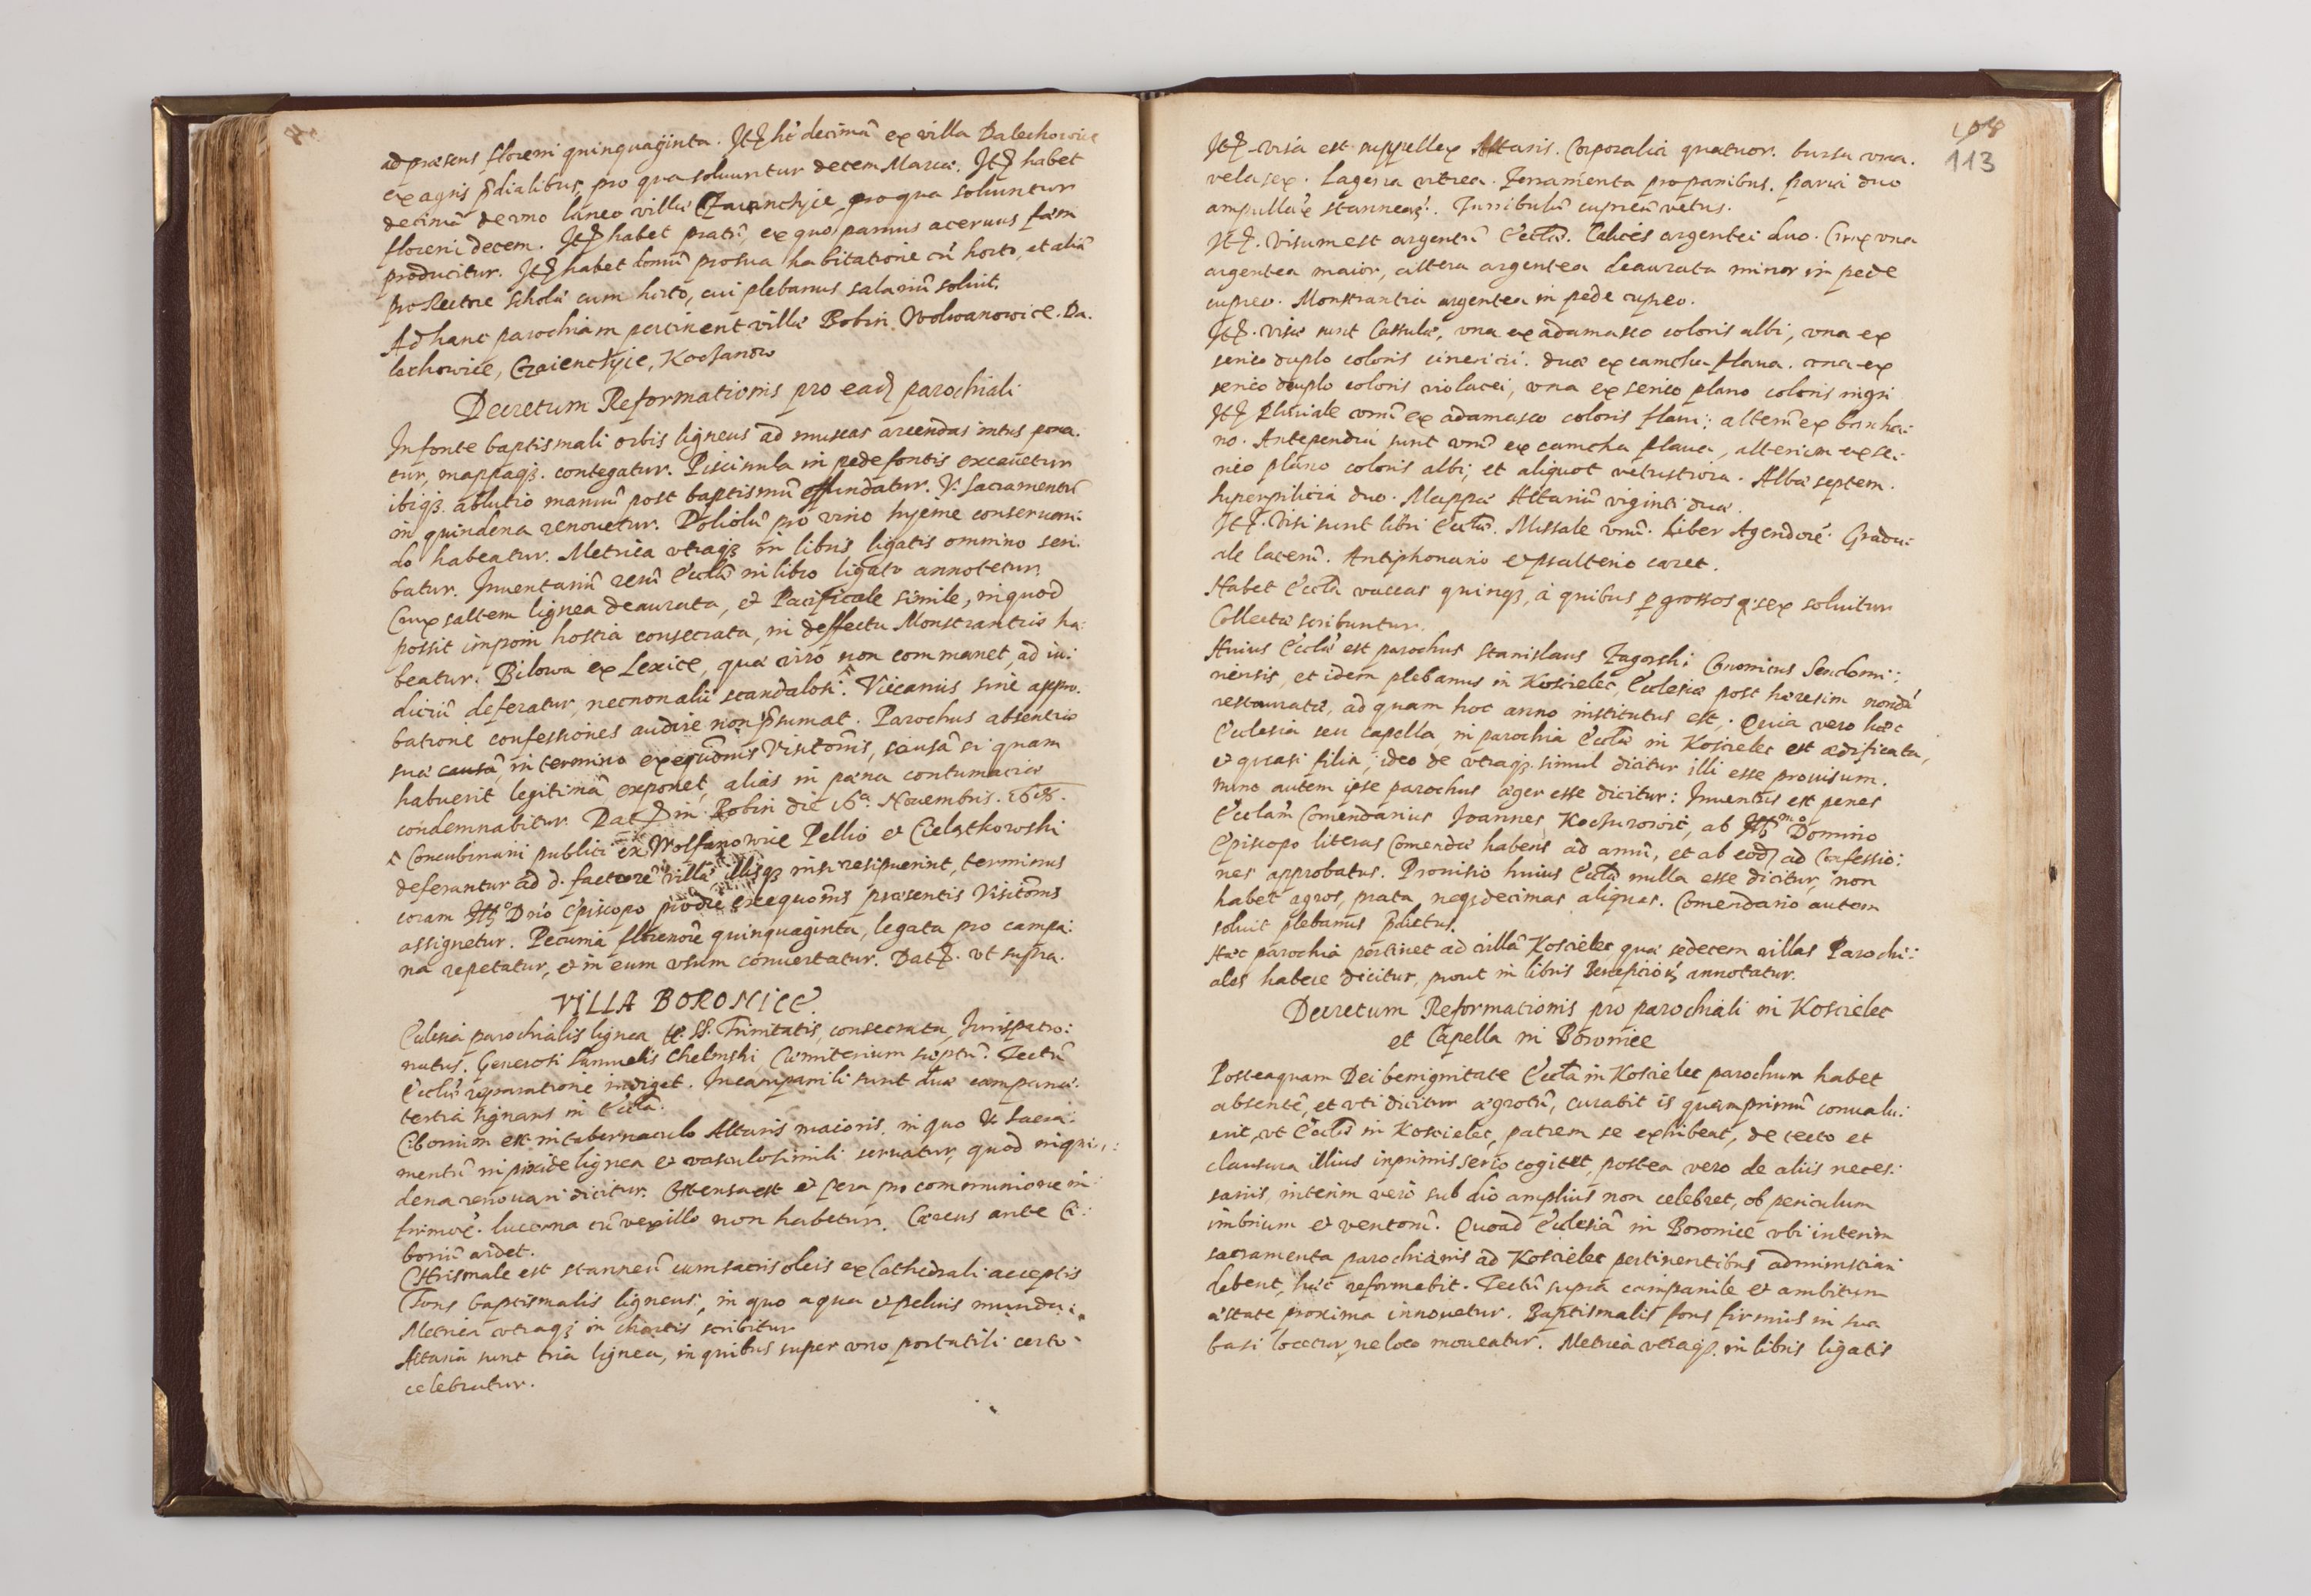 ad præsens floreni quinquaginta. Itē hēt decimā ex villa Balechowice
ex agris p̄dialibus, pro qua soluuntur decem Marcæ. Itē habet
decimā de vno laneo villæ Czaienchyce, pro qua soluuntur
floreni decem. Itē habet pratū, ex quo paruus aceruus fœni
producitur. Itē habet domū pro sua habitatione cū horto, et aliā
pro Rectore scholæ cum horto, cui plebanus salariū soluit.
Ad hanc parochiam pertinent villæ Bobin, Wolwanowice, Ba.
lechowice, Czaienchyce, Kochanow
Decretum Reformationis pro eadē parochiali
In fonte baptismali orbis ligneus ad muscas arcendas intus pona.
tur, mappaqȝ. contegatur. Piscinula in pede fontis excauetur
ibiqȝ. ablutio manuū post baptismū effundatur. V. Sacramentū
in quindena renouetur. Doliolū pro vino hyeme conseruan:
do habeatur. Metrica vtraqȝ in libris ligatis omnino scri.
batur. Inuentariū rerū Eccłæ in libro ligato annotetur.
Crux saltem lignea deaurata, et Pacificale simile, in quod
possit imponi hostia consecrata, in deffectu Monstrantiæ ha:
beatur. Bilowa ex Lexice, quæ viro non commanet, ad iu:
diciū deferatur, necnon alii scandalosi. Viccanus sine appro.
batione confessiones audire non p̄sumat. Parochus absentiæ
suæ causā, in termino exequōnis Visitōnis, causā si quam
habuerit legitimā exponet, alias in pœna contumaciæ
condemnabitur. Datē in Bobin die 16ᵃ. Nouembris. 1618.
Concubinarii publici ex Wolfanowice Pellio et Cielątkowski
deferantur ad d. factorē villæ illisqȝ nisi resipuerint, terminus
coram Illᵒ Dn̄o Episcopo pro die exequōnis præsentis Visitōnis
assignetur. Pecunia florenorē quinquaginta, legata pro campa:
na repetatur, et in eum vsum conuertatur. Datē. vt supra.
VILLA BORONICE.
Ecclesia parochialis lignea tt. SS. Trinitatis, consecrata, Iurispatro:
natus. Generosi Samuelis Chelmski, Cæmiterium sæptū. Tectū
Eccłæ reparatione indiget. In campanili sunt duæ campanæ.
tertia signans in Eccła.
Ciborium est in tabernaculo Altaris maioris, in quo V. Sacra:
mentū in pixide lignea et vasculo simili seruatur, quod in qui:
dena renouari dicitur. Ostensa est et pera pro communione in
firmorē. lucerna cū vexillo non habetur. Cereus ante Ci:
boriū ardet.
Chrismale est stanneū cum sacris oleis ex Cathedrali acceptis
Fons baptismalis ligneus, in quo aqua et peluis munda:
Metrica vtraqȝ in chartis scribitur
Altaria sunt tria lignea, in quibus super vno portatili certo
celebratur.
108
113
Itē. visa est suppellex Altaris. Corporalia quatuor. bursa vna.
vela sex. Lagena vitrea. Ferramenta pro panibus. paria duo
ampullæ stanneæ. Turribulū cupreū vetus.
Itē. Visum est argentū Eccłæ. Calices argentei duo. Crux vna
argentea maior, altera argentea deaurata minor in pede
cupreo. Monstrantia argentea in pede cupreo.
Itē. visæ sunt Cassulæ, vna ex adamasco coloris albi, vna ex
serico duplo coloris cinericii. duæ ex camcha flaua. vna ex
serico duplo coloris violacei, vna ex serico plano coloris nigri
Itē Pluuiale vnū ex adamasco coloris flaui: alterū ex barcha:
no. Antependia sunt vnū ex camcha flaua, alterum ex se:
rico plano coloris albi; et aliquot vetustiora. Albæ septem.
Superpilicia duo. Mappæ Altariū viginti duæ.
Itē. Visi sunt libri Eccłæ. Missale vnū. Liber Agendorē. Gradu:
ale lacerū. Antiphonario et psalterio caret.
Habet Eccła vaccas quinqȝ, à quibus p̱ grossos q: sex soluitur
Collecta scribuntur.
Huius Eccłæ est parochus Stanislaus Zagorski Canonicus Sendomi:
riensis, et idem plebanus in Koscielec, Ecclesiæ post hæresim nondū
restauratæ, ad quam hoc anno institutus est,. Quia vero hæc
Ecclesia seu capella, in parochia Eccłæ in Koscielec est ædificata,
et quasi filia, ideo de vtraqȝ. simul dicitur illi esse prouisum.
nunc autem ipse parochus æger esse dicitur: Inuentus est penes
Eccłam Comendarius Ioannes Kochurowic, ab Illᵐᵒ Domino
Episcopo literas Comendæ habens ad annū, et ab eodē ad Confessio:
nes approbatus. Prouisio huius Eccłæ nulla esse dicitur, non
habet agros, prata neqȝ decimas aliquas. Comendario autem
soluit plebanus p̄dictus.
Hæc parochia pertinet ad villā Koscielec, quæ sedecem villas Parochi:
ales habere dicitur, prout in libris Beneficiorē annotatur.
Decretum Reformationis pro parochiali in Koscielec
et Capella in Boronice
Posteaquam Dei benignitate Eccła in Koscielec parochum habet
absentē, et vti dicitur ægrotū, curabit is quāmprimū conualu:
erit, vt Eccłæ in Koscielec, patrem se exhibeat, de tecto et
clausura illius inprimis serio cogitet, postea vero de aliis neces:
sariis, interim vero sub dio amplius non celebret, ob periculum
imbrium et ventorū. Quoad Ecclesiā in Boronice vbi interim
sacramenta parochianis ad Koscielec pertinentibus administrari
debent, hæc reformabit. Tectū supra campanile et ambitum
æstate proxima innouetur. Baptismalis fons firmius in sua
basi locetur, ne loco moueatur. Metrica vtraqȝ. in libris ligatis